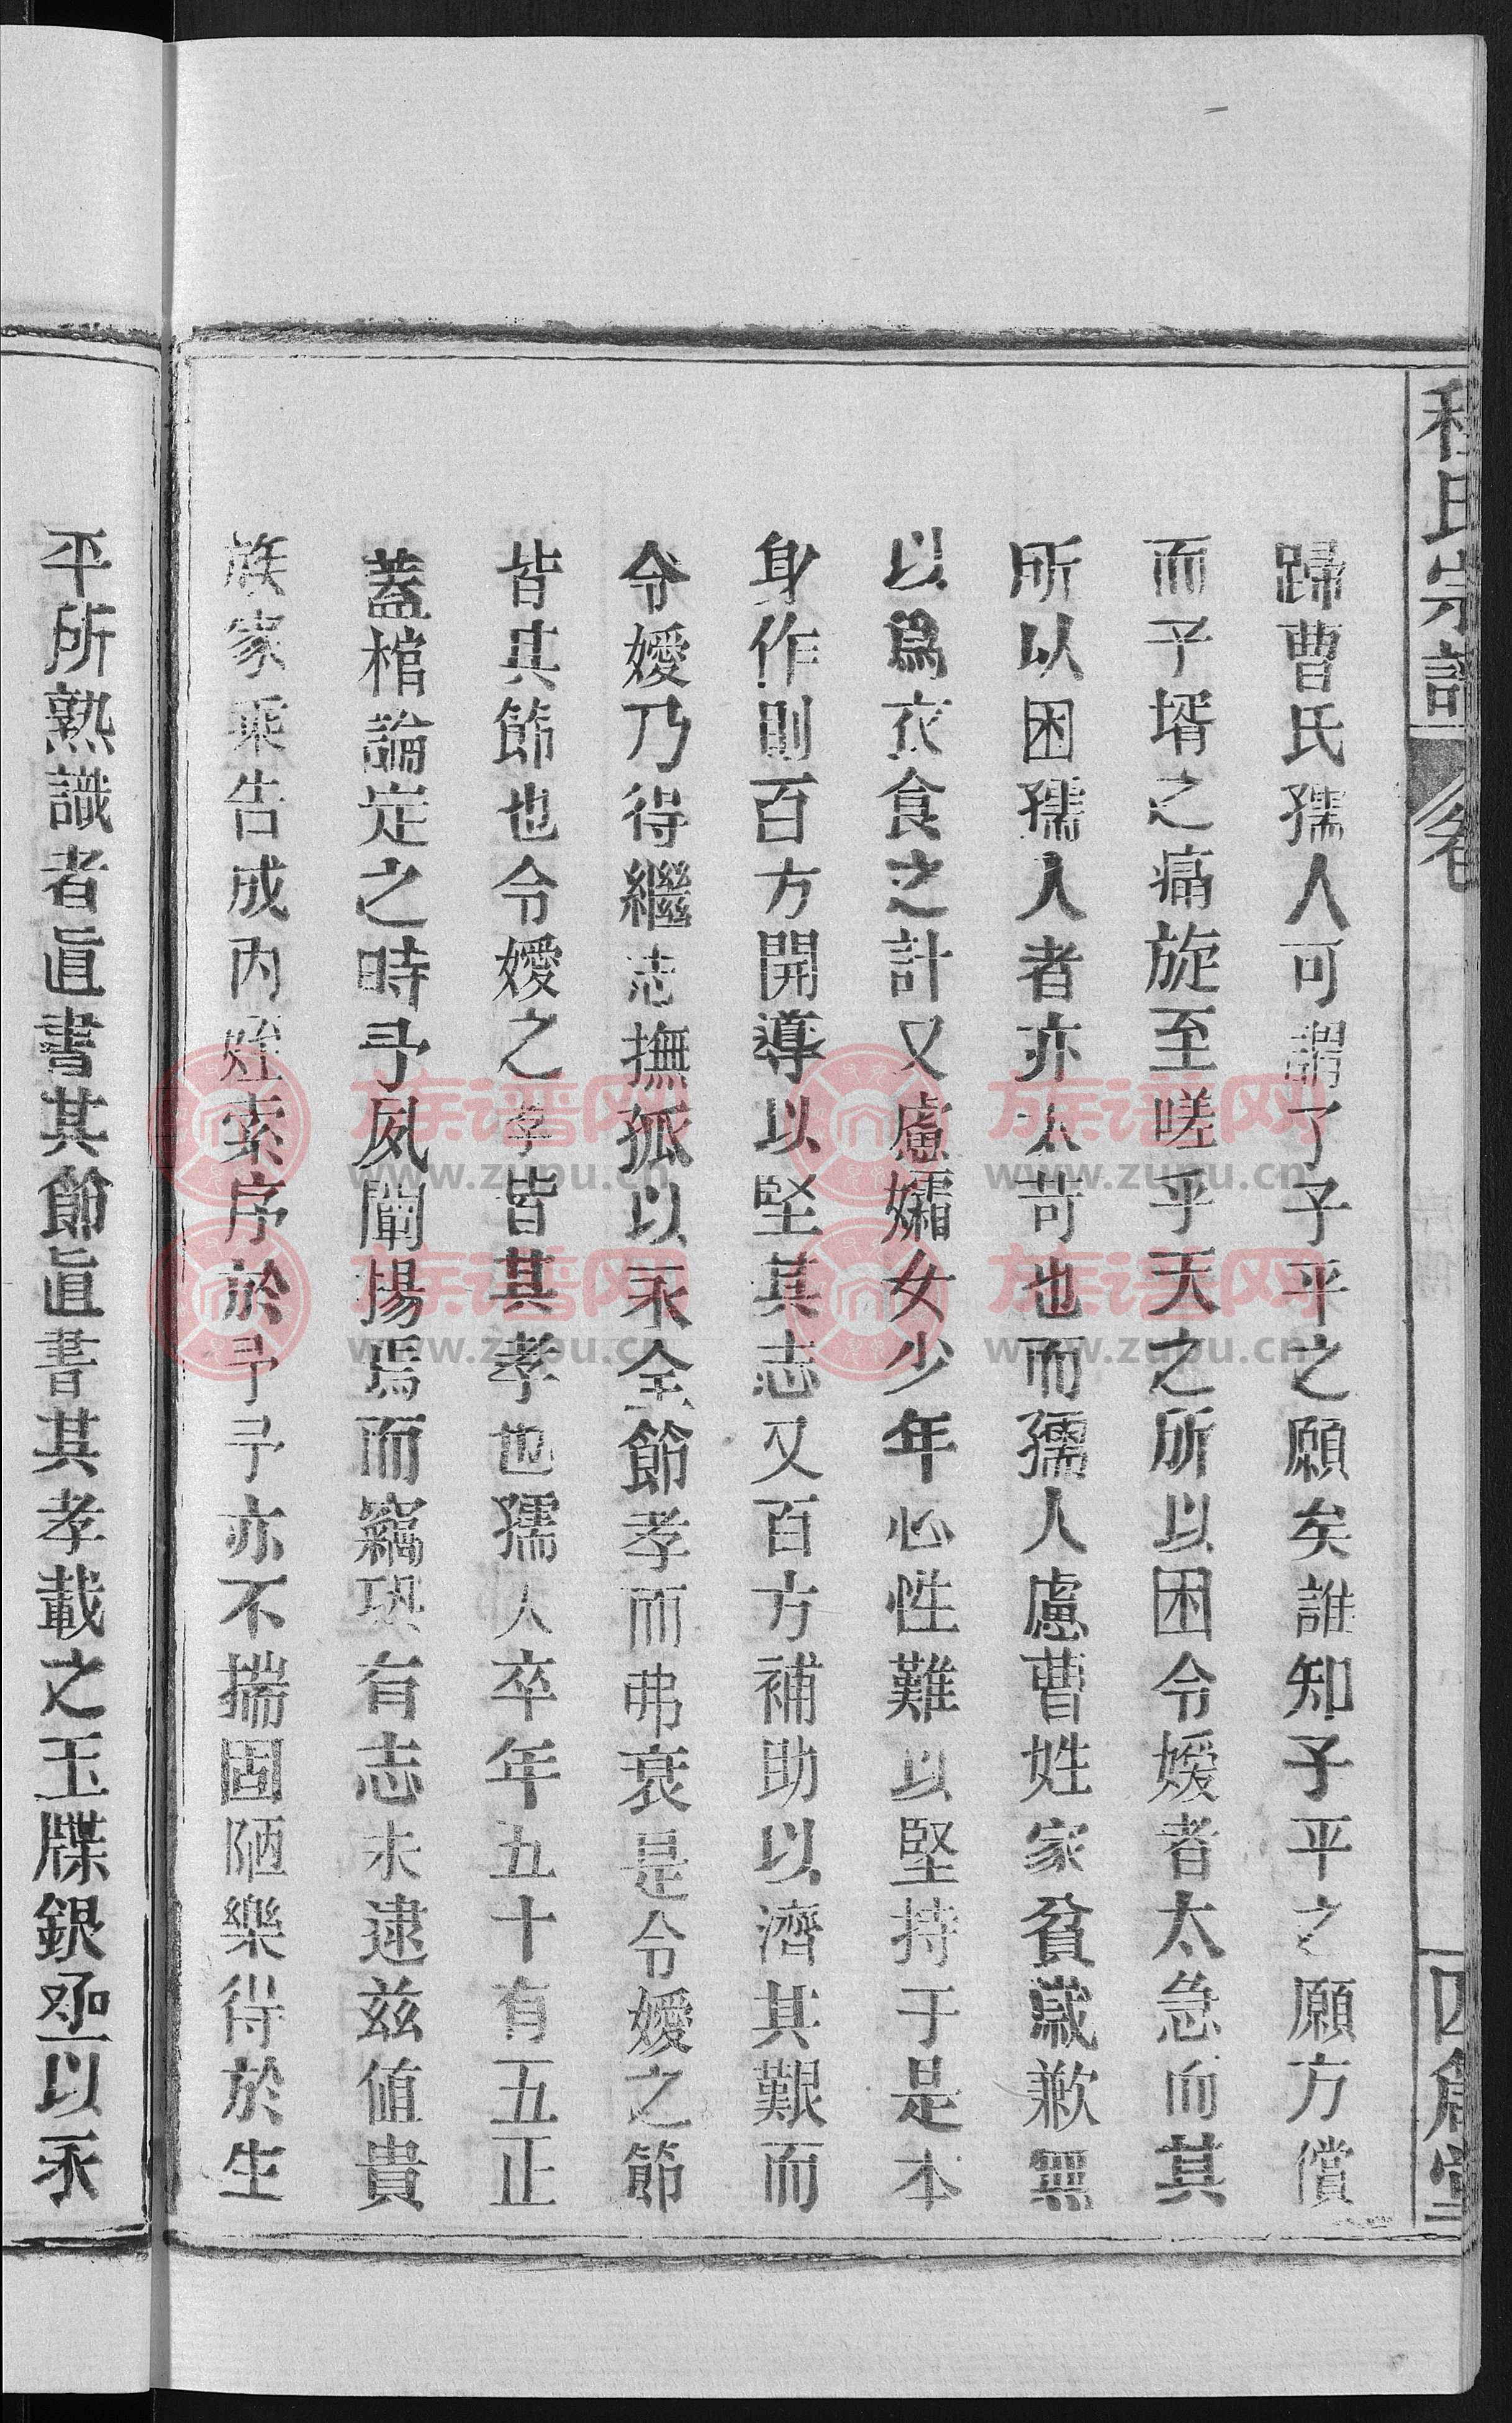 程氏宗譜 卷 四箴堂
歸曹氏孺人可謂了子平之願矣誰知子平之願方償
而子壻之痛旋至嗟乎天之所以困令嫒者太急而其
所以困孺人者亦太苛也而孺人慮曹姓家貧歲歉無
以爲衣食之計又慮孀女少年心性難以堅持于是本
身作則百方開導以堅其志又百方補助以濟其艱而
令嫒乃得繼志撫孤以永全節孝而弗衰是令嫒之節
皆其節也令嫒之孝皆其孝也孺人卒年五十有五正
蓋棺論定之時予夙闡揚焉而竊恐有志未逮兹值貴
族家乘告成内姪索序於予予亦不揣固陋樂得於生
平所熟識者直書其節直書其孝載之玉牒銀函以永
族谱网
www.zupu.cn
族谱网
www.zupu.cn
族谱网
www.zupu.cn
族谱网
www.zupu.cn